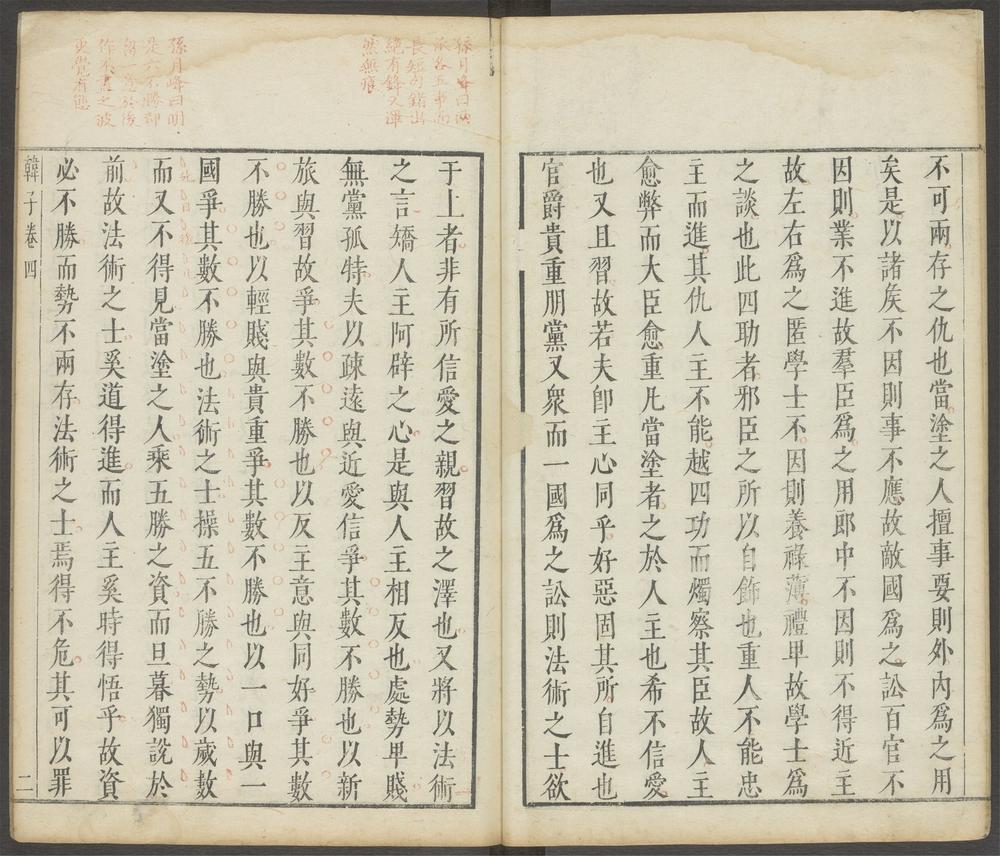 不可兩存之仇也當塗之人擅事要則外內爲之用
矣是以諸矦不因則事不應故敵國爲之訟百官不
因則業不進故羣臣爲之用郎中不因則不得近主
故左右爲之匿學士不因則養祿薄禮卑故學士爲
之談也此四助者邪臣之所以自飾也重人不能忠
主而進其仇人主不能越四功而燭察其臣故人主
愈弊而大臣愈重凡當塗者之於人主也希不信愛
也又且習故若夫卽主心同乎好惡固其所自進也
官爵貴重朋黨又衆而一國爲之訟則法術之士欲
孫月峰曰兩
衆各五事而
長短句錯出
絕有鋒又渾
然無痕
于上者非有所信愛之親習故之澤也又將以法術
之言矯人主阿辟之心是與人主相反也處勢卑賤
無黨孤特夫以疎遠與近愛信爭其數不勝也以新
旅與習故爭其數不勝也以反主意與同好爭其數
不勝也以輕賤與貴重爭其數不勝也以一口與一
國爭其數不勝也法術之士操五不勝之勢以歲數
而又不得見當塗之人乘五勝之資而旦暮獨說於
前故法術之士奚道得進而人主奚時得悟乎故資
必不勝而勢不兩存法術之士焉得不危其可以罪
孫月峰曰明
是六不勝却
留一意於後
作不盡之波
更覺有態
韓子卷四
二